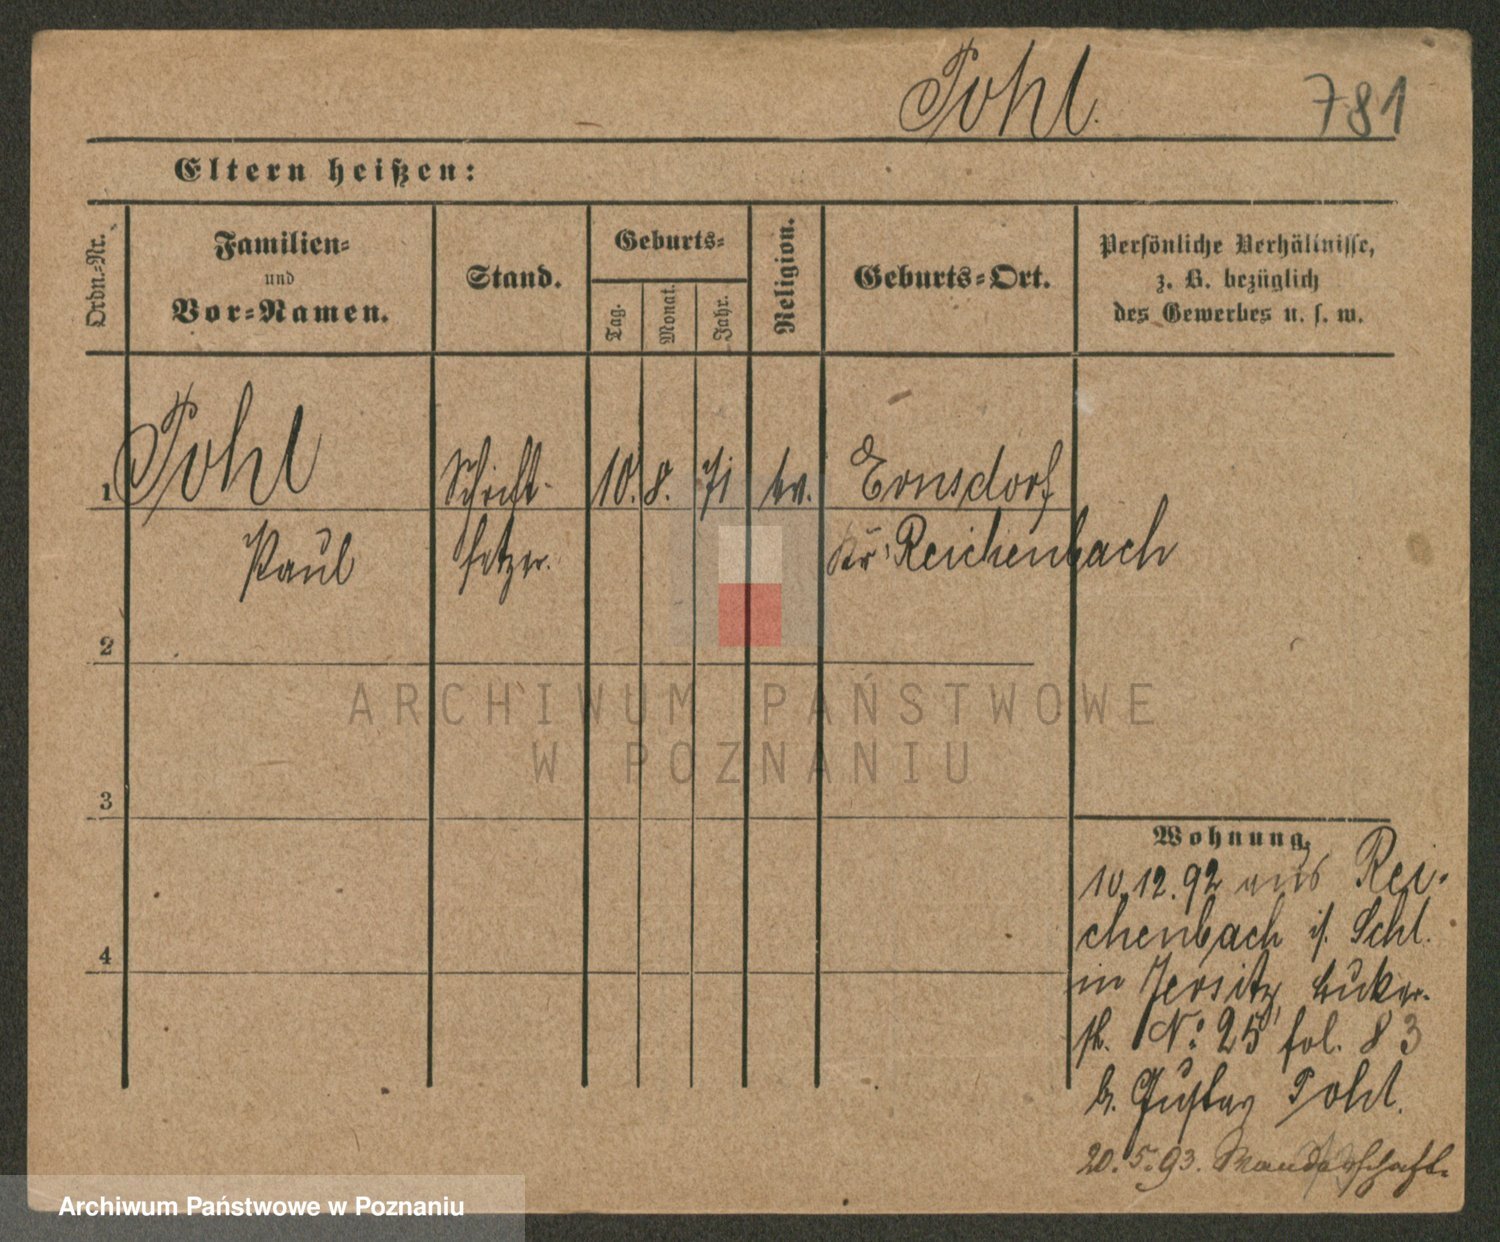 Pohl.
781
Eltern heißen:
Ordn.-Nr.
Familien-
und
Vor-Namen.
Stand.
Geburts-
Tag.
Monat.
Jahr.
Religion.
Geburts-Ort.
Persönliche Verhältnisse,
z. B. bezüglich
des Gewerbes u. s. w.
1
Pohl
Schrift-
10. 8. 71
ev.
Ernsdorf
Paul
setzer.
Kr. Reichenbach
2
ARCHIWUM PAŃSTWOWE
W POZNANIU
3
Wohnung.
10.12.92 aus Rei-
chenbach i/. Schl.
4
in Jersitz,
No 25, fol. 83
b. Gustav Pohl.
20.5.93. Wanderschaft.
Archiwum Państwowe w Poznaniu